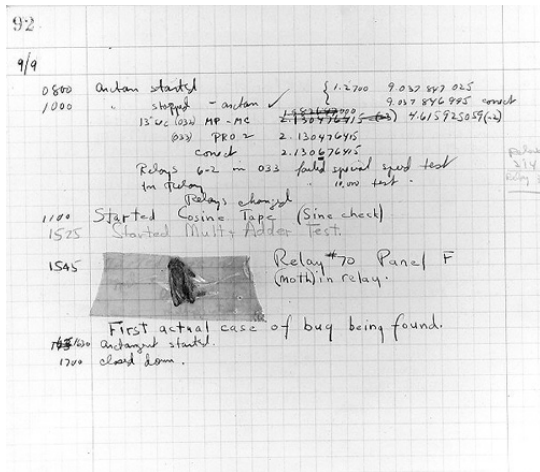 92
9/9
0800 Antan started
1000 " stopped - antan ✓ { 1.2700 9.037 847 025
9.037 846 995 correct
13"uc (032) MP - MC 2.130476415 (-3) 4.615925059(-2)
(033) PRO 2 2.130476415
correct 2.130676415
Relays 6-2 in 033 failed special speed test
in Relay " 10,000 test.
Relays changed
1100 Started Cosine Tape (Sine check)
1525 Started Mult + Adder Test.
1545 Relay #70 Panel F
(moth) in relay.
First actual case of bug being found.
1630 antangent started.
1700 closed down.